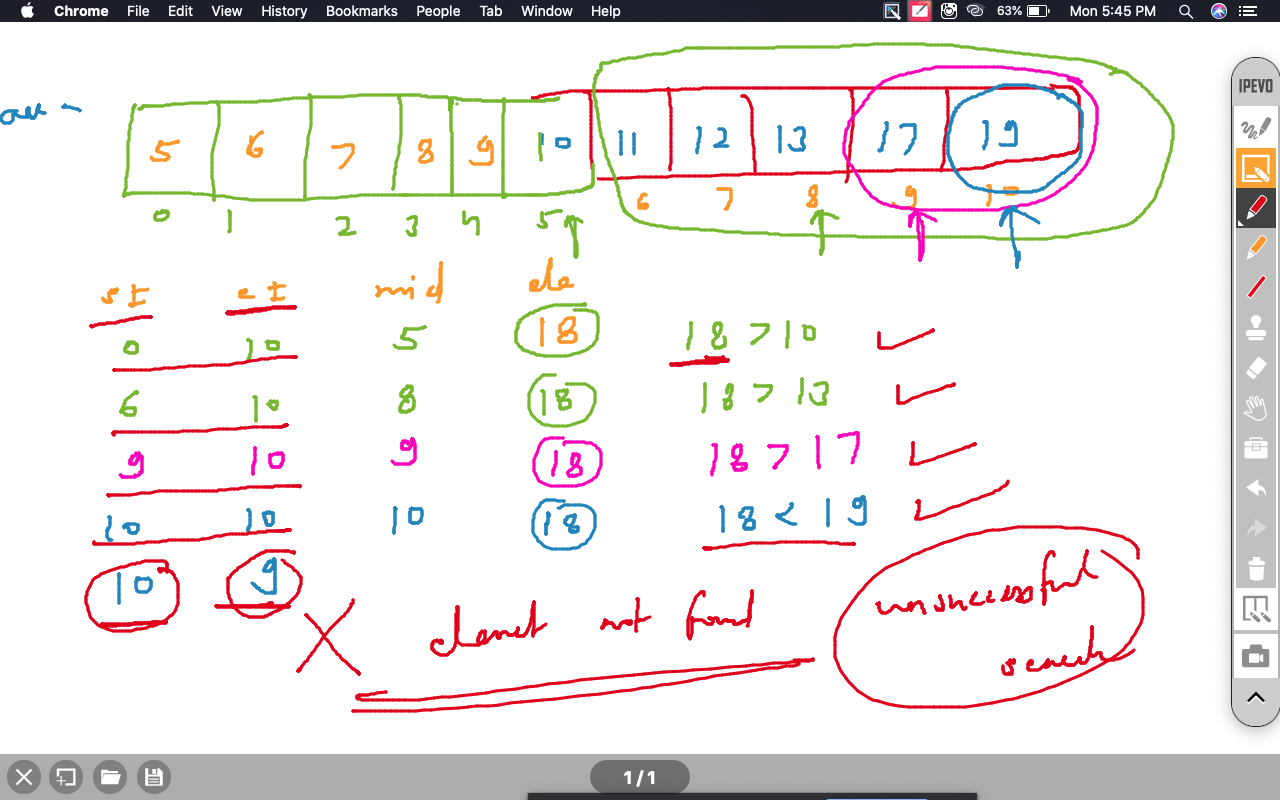 Chrome File Edit View History Bookmarks People Tab Window Help 63% Mon 5:45 PM
IPEVO
arr -
5 6 7 8 9 10 11 12 13 17 19
0 1 2 3 4 5 6 7 8 9 10
SI eI mid ele
0 10 5 18 18 > 10
6 10 8 18 18 > 13
9 10 9 18 18 > 17
10 10 10 18 18 < 19
10 9
element not found
unsuccessful
search
1/1